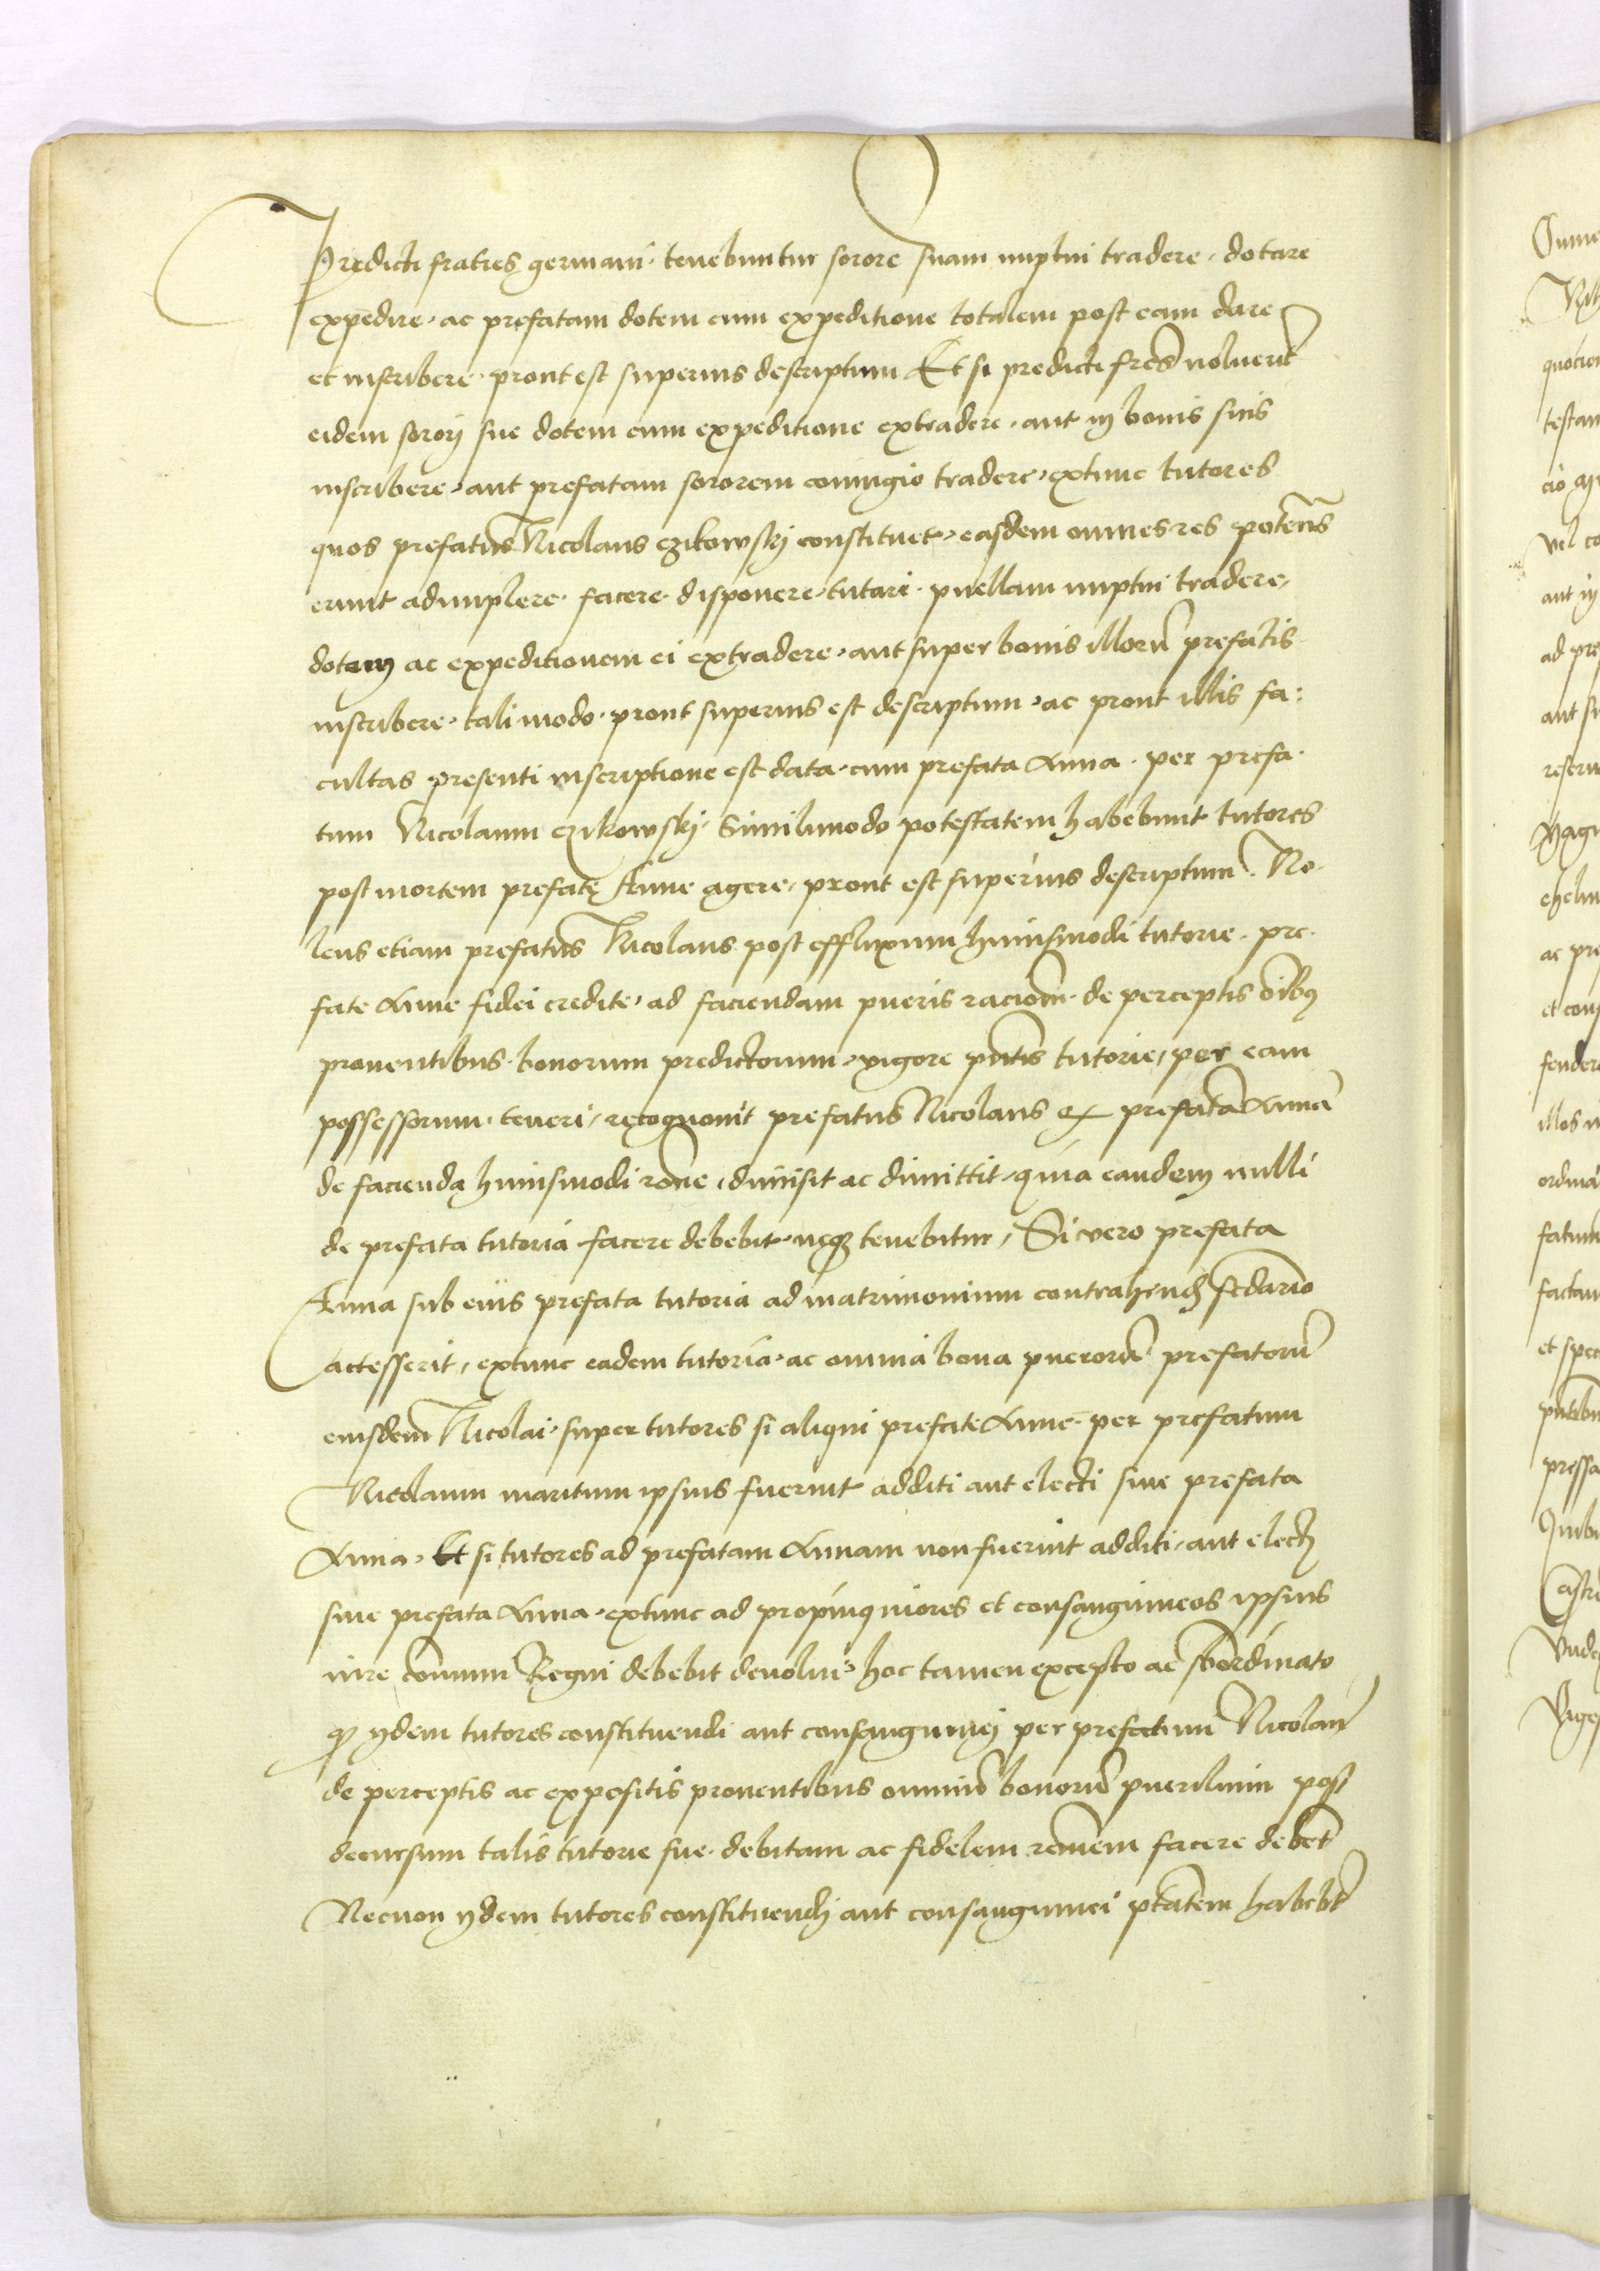 Predicti fratres germani tenebuntur sorore suam nuptui tradere, dotare
expedire, ac prefatam dotem cum expeditione totalem post eam dare
et inscribere, prout est superius descriptum Et si predicti fres noluerit
eidem sorori sue dotem cum expeditione extradere, aut in bonis suis
inscribere, aut prefatam sororem coniugio tradere, extunc tutores
quos prefatus Nicolaus czikowskij constituet, easdem omnes res potens
erunt adimplere, facere, disponere, tutari, puellam nuptui tradere,
dotem ac expeditionem ei extradere, aut super bonis illoru prefatis
inscribere, tali modo, prout superius est descriptum, ac prout illis fa:
cultas presenti inscriptione est data, cum prefata Anna, per prefa
tum Nicolaum czikowskij, Similimodo potestatem habebunt tutores
post mortem prefatę Anne agere, prout est superius descriptum. No
lens etiam prefatus Nicolaus post effluxum huiusmodi tutorie, pre
fate Anne fidei credite, ad faciendam pueris raciom, de perceptis oibus
prouentibus bonorum predictorum, vigore pntis tutorie, per eam
possessorum, teneri, recognouit prefatus Nicolaus et prefata Anna
de facienda huiusmodi rone, dimisit ac dimittit, quia eandem nulli
de prefata tutoria facere debebit, neq tenebitur, Si vero prefata
Anna sub eius prefata tutoria ad matrimonium contrahend scdario
actesserit, extunc eadem tutoria, ac omnia bona pueroru prefatoru
eiusdem Nicolai, super tutores si aliqui prefate Anne per prefatum
Nicolaum maritum ipsius fuerint additi aut electi sine prefata
Anna, Et si tutores ad prefatam Annam non fuerint additi, aut electi
sine prefata Anna, extunc ad propinquiores et consanguineos ipsius
iure comuni Regni debebit deuolui, hoc tamen excepto ac sbordinato
q ijdem tutores constituendi aut consanguinej per prefectum Nicolaum
de perceptis ac expositis prouentibus omniu bonoru puerilium post
decursum talis tutorie sue, debitam ac fidelem ronem facere debet
Necnon ijdem tutores constituendi aut consanguinei ptatem habebt